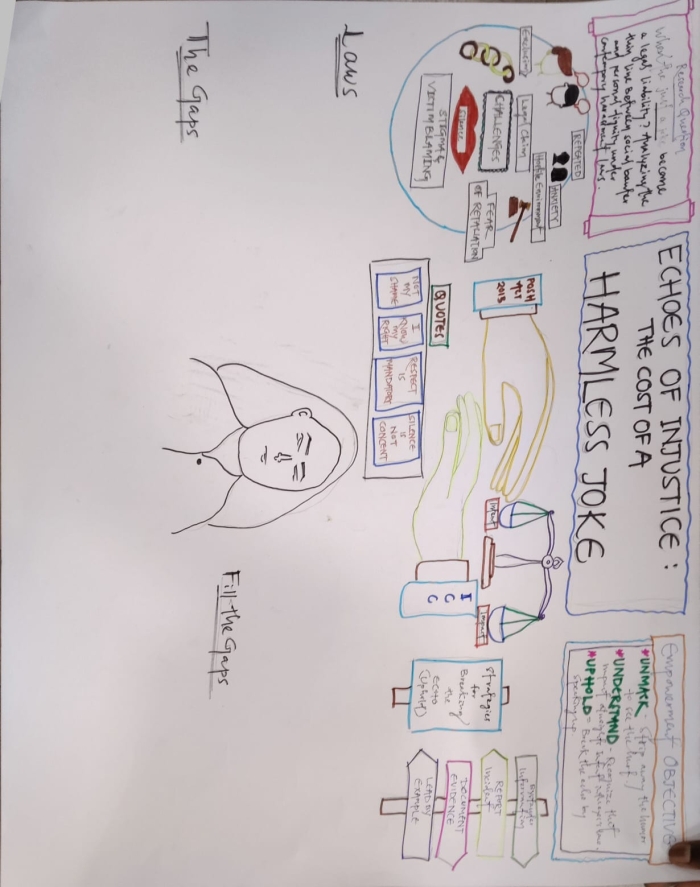 Research Question
When does 'just a joke' become
a legal liability? Analyzing the
thin line between social banter
and personal dignity under
contemporary harassment laws.
ECHOES OF INJUSTICE :
THE COST OF A
HARMLESS JOKE
Empowerment OBJECTIVE
UNMASK - Strip away the humor
to see the
UNDERSTAND - Recognize that
impact
UPHOLD - Break the echo by
speaking up
REPEATED
ANXIETY
Hostile Environment
Legal Claim
CHALLENGES
FEAR
OF RETALIATION
Silence
STIGMA &
VICTIM BLAMING
POSH
ACT
2013
Intent
Impact
I
C
C
QUOTES
NOT
MY
SHAME
I
KNOW
MY
RIGHT
RESPECT
IS
MANDATORY
SILENCE
IS
NOT
CONCENT
Strategies
for
Breaking
the
ECHO
(Uphold)
REPORT
Incident
DOCUMENT
EVIDENCE
LEAD BY
EXAMPLE
Laws
The Gaps
Fill-the Gaps